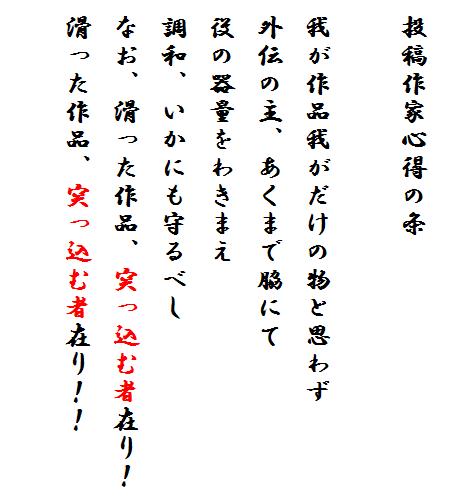 投稿作家心得の条
我が作品我がだけの物と思わず
外伝の主、あくまで脇にて
役の器量をわきまえ
調和、いかにも守るべし
なお、滑った作品、突っ込む者在り！
滑った作品、突っ込む者在り！！